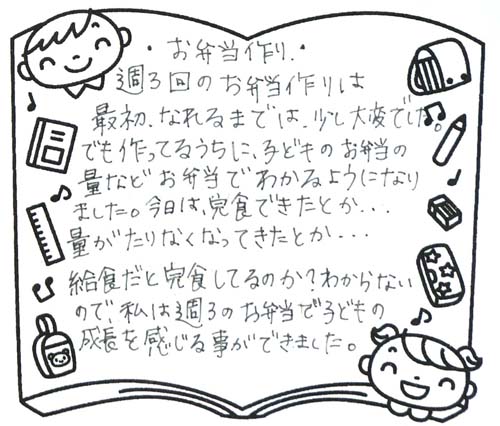 ・お弁当作り・
週3回のお弁当作りは
最初、なれるまでは、少し大変でした。
でも作ってるうちに、子どものお弁当の
量などお弁当でわかるようになり
ました。今日は、完食できたとか・・・
量がたりなくなってきたとか・・・
給食だと完食してるのか？わからない
ので、私は週3のお弁当で子どもの
成長を感じる事ができました。